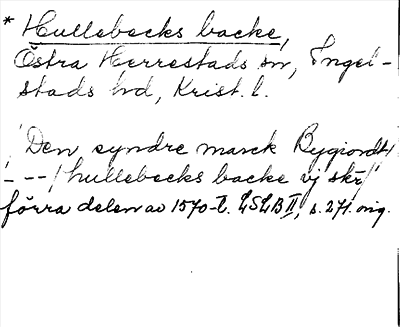 * Hullebecks backe,
Östra Herrestads sn, Ingel-
stads hd, Krist. l.
/Den syndre marck Bygiordt/
- - -/hullebecks backe vj skr/
förra delen av 1570-t. LSLB II, s. 271. orig.